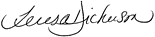 Teresa Dickerson